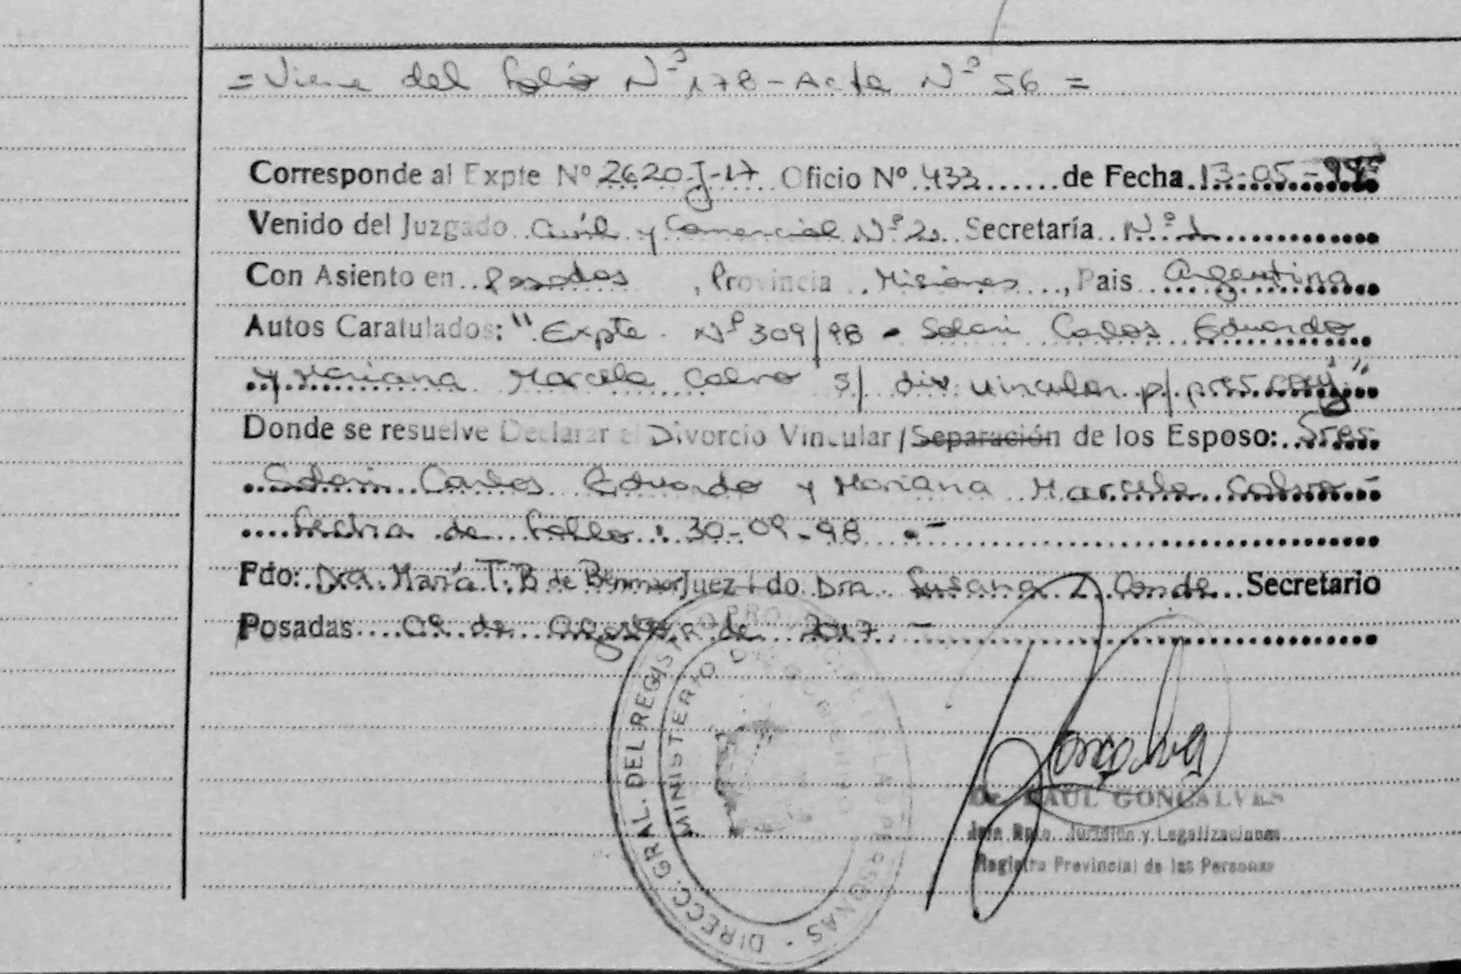 = Viene del folio Nº 178 - Acta Nº 56 =
Corresponde al Expte Nº 2620-J-17 Oficio Nº 433 ...... de Fecha 13-05-99
Venido del Juzgado Civil y Comercial Nº 2. Secretaría Nº 1
Con Asiento en Posadas, Provincia Misiones, Pais Argentina
Autos Caratulados: "Expte. Nº 309/98 - Solari Carlos Eduardo
y Mariana Marcela Calvo s/ div. vincular p/. pres. conj."
Donde se resuelve Declarar el Divorcio Vincular / Separación de los Esposo: Sres.
Solari Carlos Eduardo y Mariana Marcela Calvo -
fecha de fallo: 30-09-98 .-
Fdo: Dra. María T. B de Juez Fdo Dra. Susana Z. Conde Secretario
Posadas 09 de Agosto de 2017 -
DIRECC. GRAL. DEL REGISTRO PROVINCIAL DE LAS PERSONAS
MINISTERIO DE GOBIERNO
Dr. RAUL GONCALVES
Jefe Dpto. Jurídico y Legalizaciones
Registro Provincial de las Personas